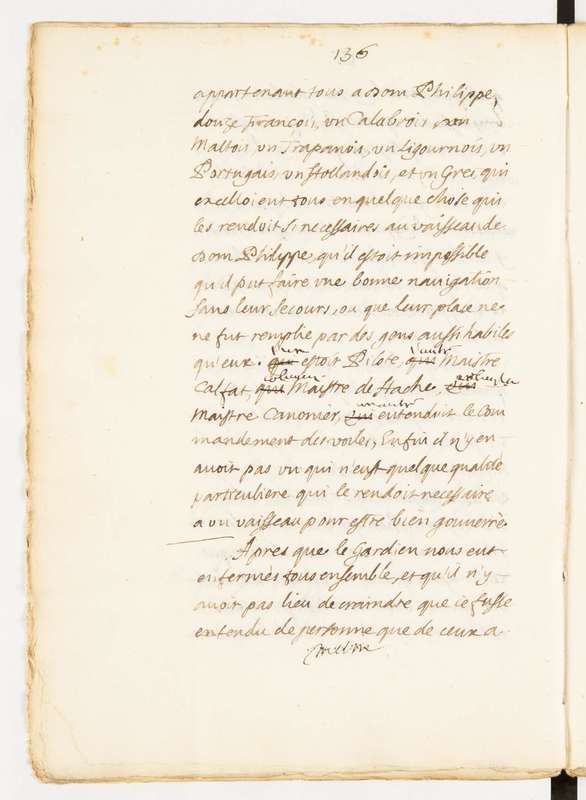 136
appartenant tous a Dom Philippe,
douze françois, vn Calabrois, vn
Maltois, vn Trapanois, vn Ligournois, vn
Portugais, vn Hollandois, et vn Grec, qui
excelloient tous en quelque chose qui
les rendoit si necessaires au vaisseau de
Dom Philippe, qu'il estoit impossible
qu'il put faire vne bonne nauigation
sans leur secours, ou que leur place ne
ne fut remplie par des gens aussi habiles
l'vn l'autre
qu'eux. qui estoit Pilote, qui Maistre
celuicy
Calfat, qui Maistre de Hache, qui
vn autre
Maistre Canonier, qui entendoit le com
mandement des voiles, Enfin il n'y en
auoit pas vn qui n'eust quelque qualité
particuliere qui le rendoit necessaire
a vn vaisseau pour estre bien gouuerné.
Apres que le Gardien nous eut
enfermés tous ensemble, et qu'il n'y
auoit pas lieu de craindre que ie fusse
entendu de personne que de ceux a